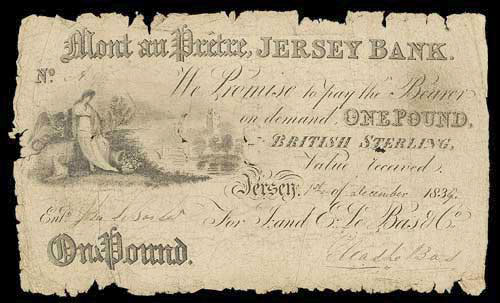 Mont au Prêtre, JERSEY BANK.
No.
We Promise to pay the Bearer
on demand, ONE POUND,
BRITISH STERLING,
Value received.
Jersey, 1st of December 183
Entd
For J. and E. Le Bas & Co
One Pound.
Elias Le Bas